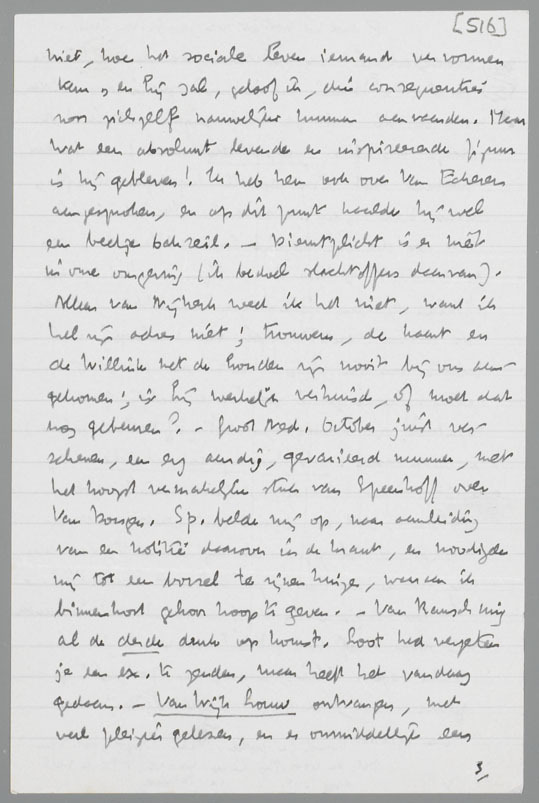 [516]
niet, hoe het sociale leven iemand vervormen
kan, en hij zal, geloof ik, die consequenties
voor zichzelf nauwelijks kunnen aanvaarden. Maar
wat een absoluut levende en inspireerende figuur
is hij gebleven! Ik heb hem ook over Van Eckeren
aangesproken, en op dit punt haalde hij wel
een beetje bakzeil. — Dienstplicht is er niet
in onze omgeving (ik bedoel slachtoffers daarvan).
Alleen van Nijkerk weet ik het niet, want ik
heb zijn adres niet; trouwens, de krant en
de Willink met de honden zijn nooit bij ons aan-
gekomen; is hij werkelijk verhuisd, of moet dat
nog gebeuren? — Groot Ned. October juist ver-
schenen, een erg aardig, gevarieerd nummer, met
het hoogst vermakelijke stuk van Speenhoff over
Van Dongen. Sp. belde mij op, naar aanleiding
van een notitie daarover in de krant, en noodigde
mij tot een borrel te zijnen huize, waaraan ik
binnenkort gehoor hoop te geven. — Van Rauschning
al de derde druk op komst. Loot had vergeten
je een ex. te zenden, maar heeft het vandaag
gedaan. — Van Wijk Louw ontvangen, met
veel plezier gelezen, en er onmiddellijk een
3/